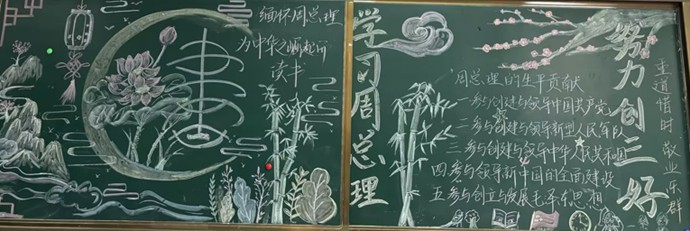 缅怀周总理
为中华之崛起而
读书
学习周总理
周总理的生平贡献
一参与创建与领导中国共产党
二参与创建与领导新型人民军队
三参与创建与领导中华人民共和国
四参与领导新中国的全面建设
五参与创立与发展毛泽东思想
努力创三好
主道惜时 敬业乐群